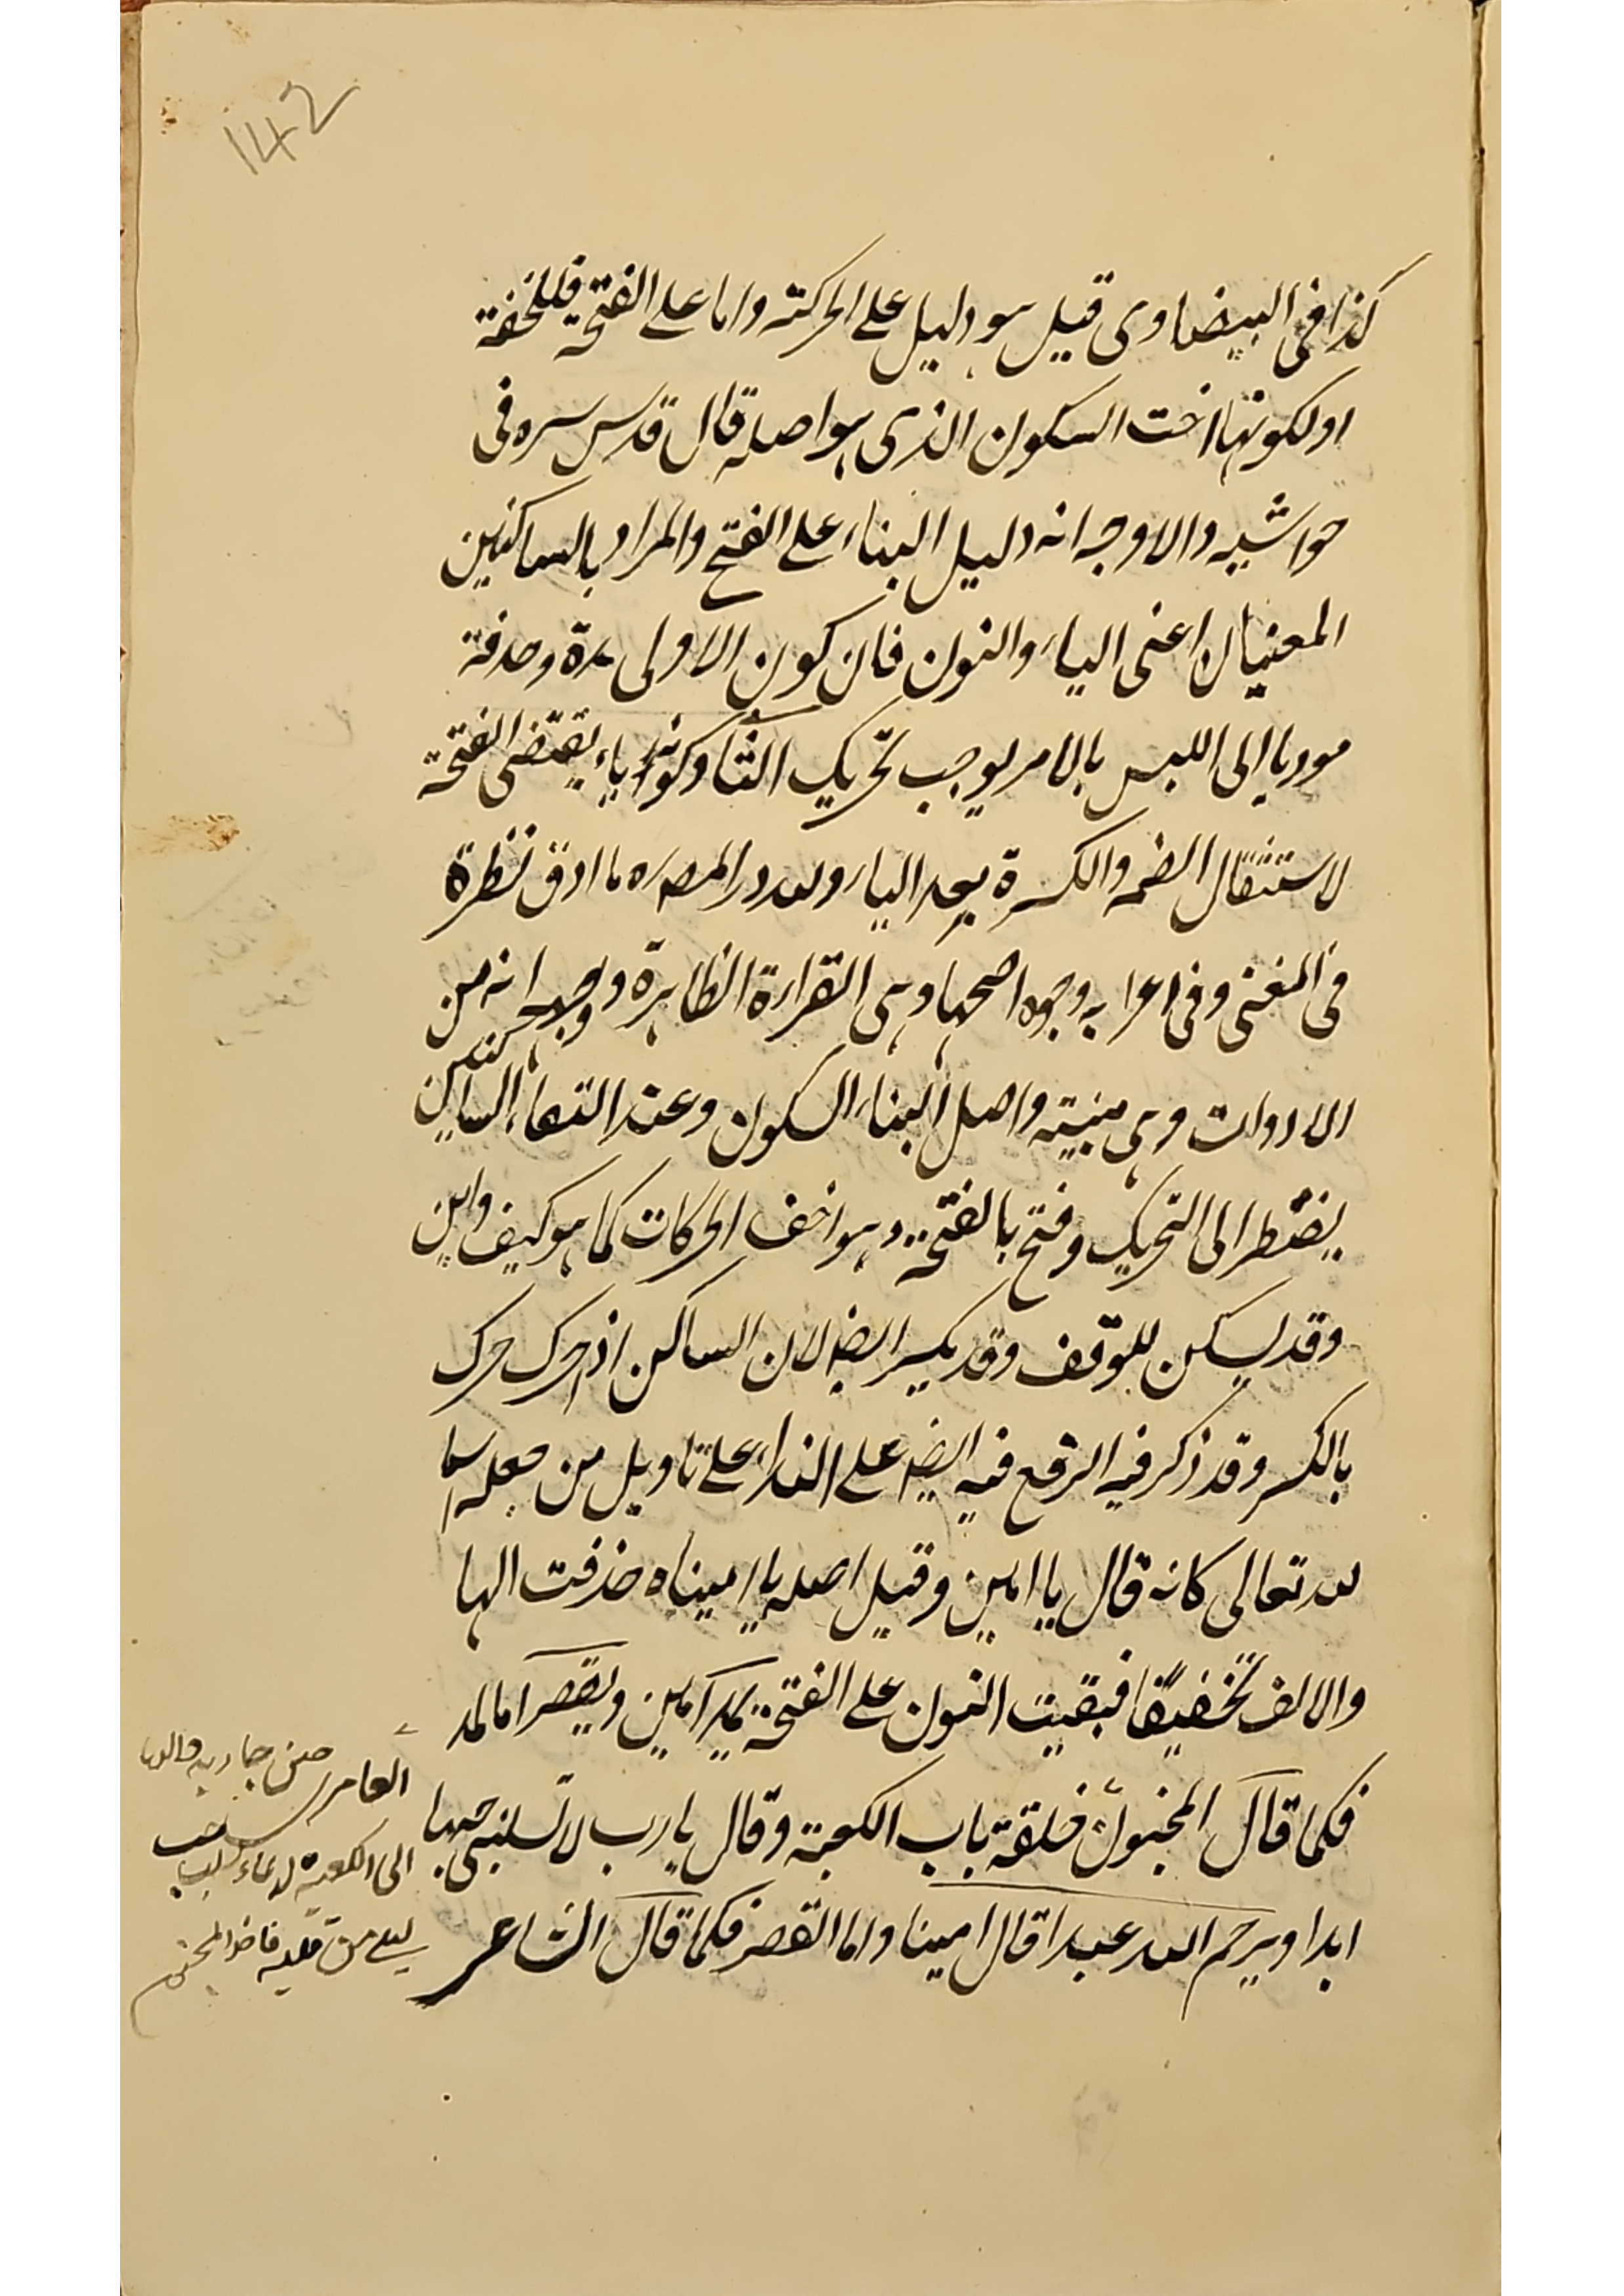 142
كذا فى البيضاوى قيل هو دليل على الحركة واما على الفتحة فللخفة
او لكونها اخت السكون الذى هو اصله قال قدس سره فى
حواشيه والاوجه انه دليل البناء على الفتح والمراد بالساكنين
المعنيان اعنى الياء والنون فان كون الاولى مدة وحذفه
موديا الى اللبس بالامر يوجب تحريك الثنا وكونها ياء يقتضى الفتحة
لاستثقال الضمه والكسرة بعد الياء ولله در المصره ما ادق نظره
فى المغنى وفى اعرابه وجوه اصحها وهى القراءة الظاهرة وجه انه من
الادوات وهى مبنيته واصل البناء السكون وعند التقاء الساكنين
يضطر الى التحريك وفتح بالفتحة وهو اخف الحركات كما هو كيف واين
وقد يسكن للتوقف وقد يكسر ايضا لان الساكن اذا حرك حرك
بالكسر وقد ذكر فيه الرفع فيه ايضا على النداء على تاويل من جعله اسما
لله تعالى كانه قال يا امين وقيل اصله يا اميناه حذفت الها
والالف تخفيفا فبقيت النون على الفتحة يمد آمين ويقصر اما المد
فكما قال المجنون حلقة باب الكعبة وقال يا رب لا تسلبنى حبها
ابدا ويرحم الله عبدا قال امينا واما القصر فكما قال الشاعر
العامرى حين جاء به والده
الى الكعبة لدعاء سلب حب
ليلى من قلبه فاخذ المجنون